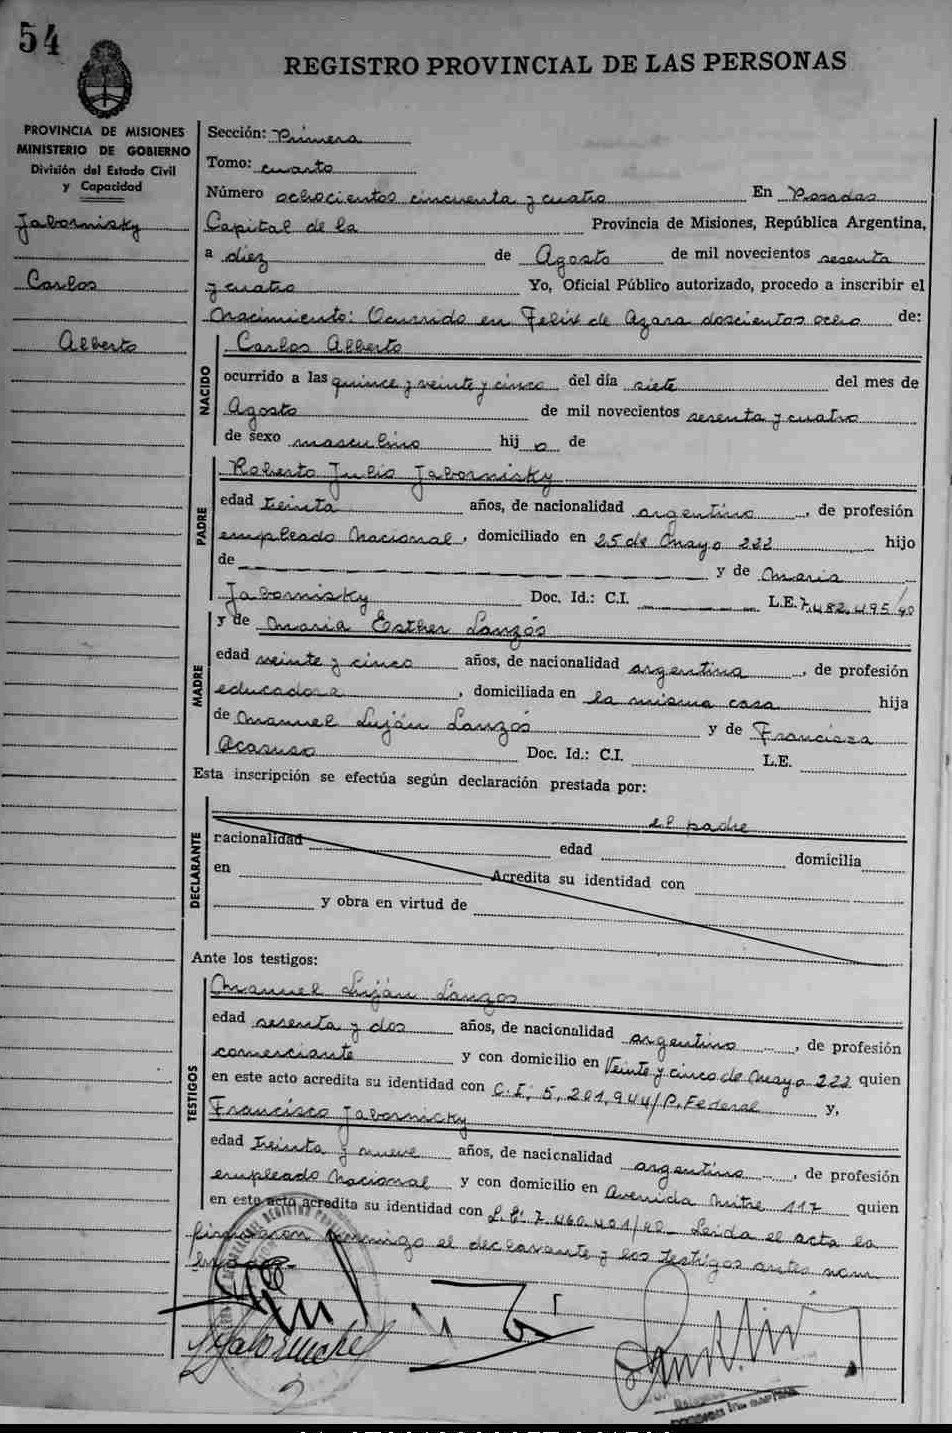 54
REGISTRO PROVINCIAL DE LAS PERSONAS
PROVINCIA DE MISIONES
MINISTERIO DE GOBIERNO
División del Estado Civil
y Capacidad
Jabornisky
Carlos
Alberto
Sección: Primera
Tomo: cuarto
Número ochocientos cincuenta y cuatro En Posadas
Capital de la Provincia de Misiones, República Argentina,
a diez de Agosto de mil novecientos sesenta
y cuatro Yo, Oficial Público autorizado, procedo a inscribir el
Nacimiento: Ocurrido en Felix de Azara doscientos ocho de:
NACIDO
Carlos Alberto
ocurrido a las quince y veinte y cinco del día siete del mes de
Agosto de mil novecientos sesenta y cuatro
de sexo masculino hij o de
PADRE
Roberto Julio Jabornisky
edad treinta años, de nacionalidad argentino, de profesión
empleado Nacional, domiciliado en 25 de Mayo 222 hijo
de y de Maria
Jabornisky Doc. Id.: C.I. L.E. 7.482.495/40
MADRE
y de Maria Esther Lanzós
edad veinte y cinco años, de nacionalidad argentina, de profesión
educadora, domiciliada en la misma casa hija
de Manuel Luján Lanzós y de Francisca
Doc. Id.: C.I. L.E.
Esta inscripción se efectúa según declaración prestada por:
DECLARANTE
el padre
nacionalidad edad domicilia
en Acredita su identidad con
y obra en virtud de
Ante los testigos:
TESTIGOS
Manuel Luján Lanzos
edad sesenta y dos años, de nacionalidad argentino, de profesión
comerciante y con domicilio en Veinte y cinco de Mayo 222 quien
en este acto acredita su identidad con C.I. 5.201.944/P. Federal y,
Francisco Jabornicky
edad treinta y nueve años, de nacionalidad argentino, de profesión
empleado Nacional y con domicilio en Avenida Mitre 117 quien
en este acto acredita su identidad con L.E. 7.460.401/40 Leida el acta la
firmaron conmigo el declarante y los testigos antes nom